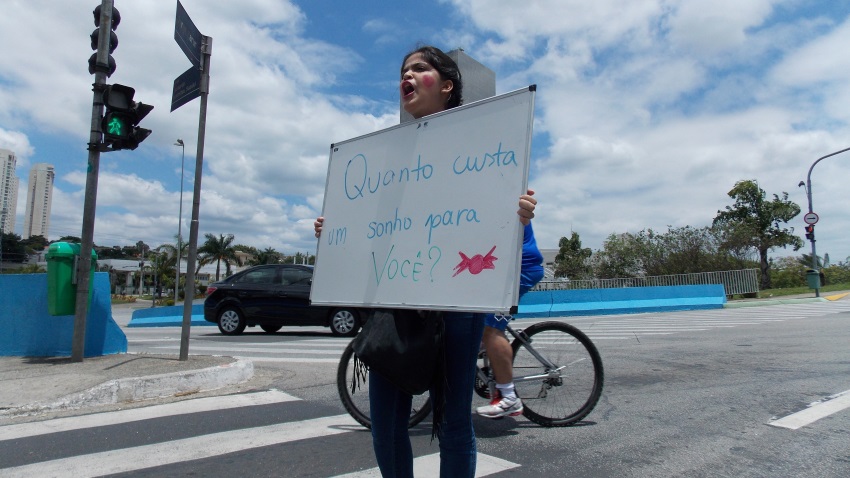 Quanto custa
um sonho para
Você?